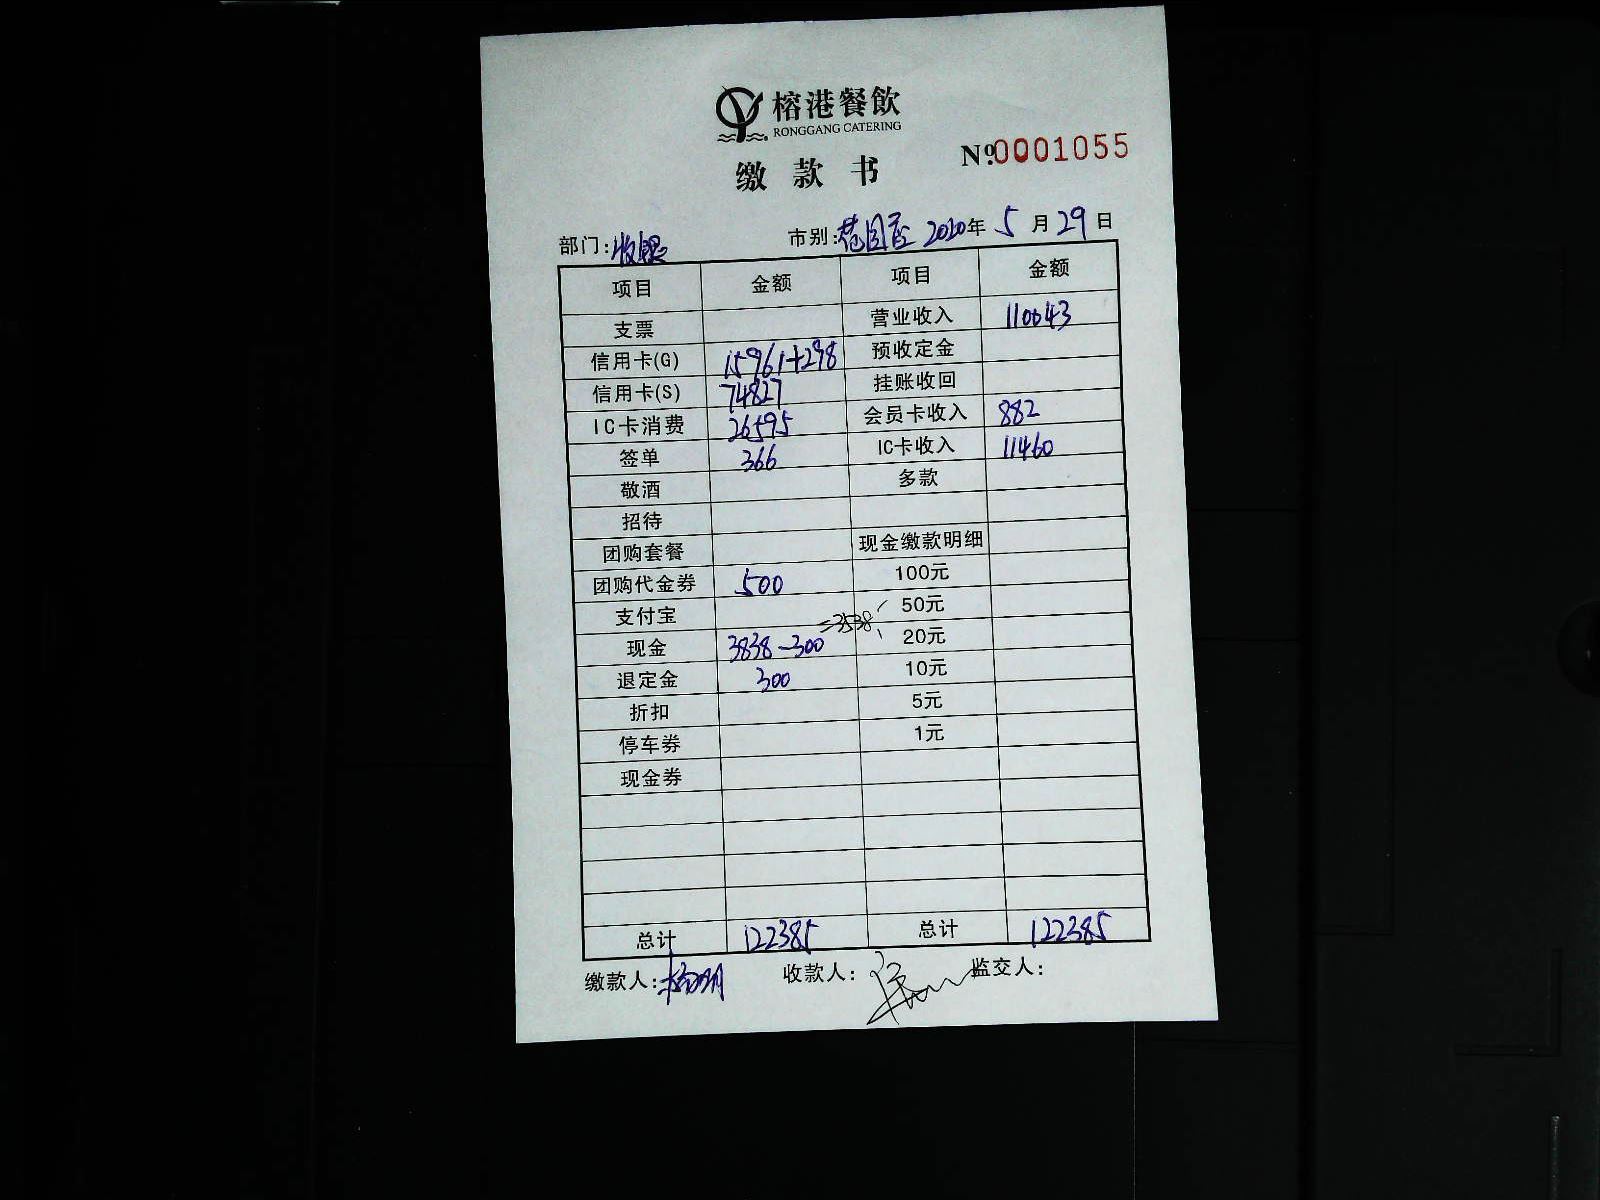 榕港餐飲
RONGGANG CATERING
缴款书 Nº 0001055
部门:收银 市别:范围店 2020年 5 月 29 日
项目 金额 项目 金额
支票 营业收入 110043
信用卡(G) 15961+298 预收定金
信用卡(S) 74827 挂账收回
IC卡消费 26595 会员卡收入 882
签单 366 IC卡收入 11460
敬酒 多款
招待
团购套餐 现金缴款明细
团购代金券 500 100元
支付宝 50元
现金 3838-300 =3538 20元
退定金 300 10元
折扣 5元
停车券 1元
现金券
总计 122385 总计 122385
缴款人: 收款人: 监交人: